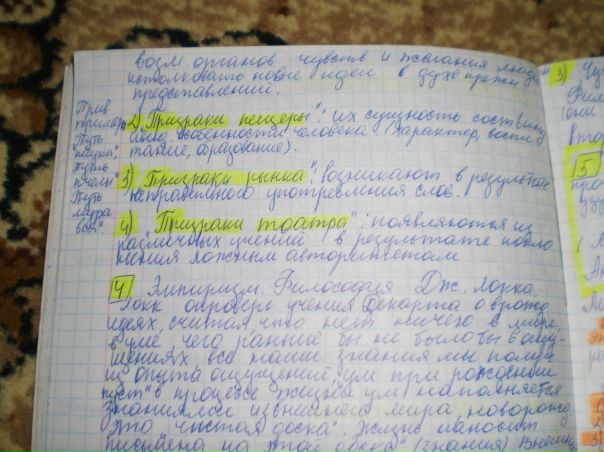 возм. органов чувств и желания людей
истолковать новые идеи в духе прежн
представлений.
2) "Призраки пещеры": их сущность сост в инд
особенностях человека (характер, воспи
тание, образование).
3) "Призраки рынка": возникают в результате
неправильного употребления слов.
4) "Призраки театра": появляются из
различных учений в результате покло
нения ложным авторитетам
Прив.
пример
"Путь
паука",
"Путь
пчелы"
"Путь
мурав
вья"
4 Эмпиризм. Философия Дж. Локка.
Локк опроверг учения Декарта о врожд
идеях, считая что нет ничего в мире,
в уме чего раньше бы не было бы в ощу-
щениях, все наши знания мы получ
из опыта ощущений, ум при рождении
"пуст" в процессе жизни ум наполняется
знаниями из внешнего мира, новорожд
это "чистая доска". Жизнь наносит
"письмена на этой доске" (знания) Внешн
3)
5